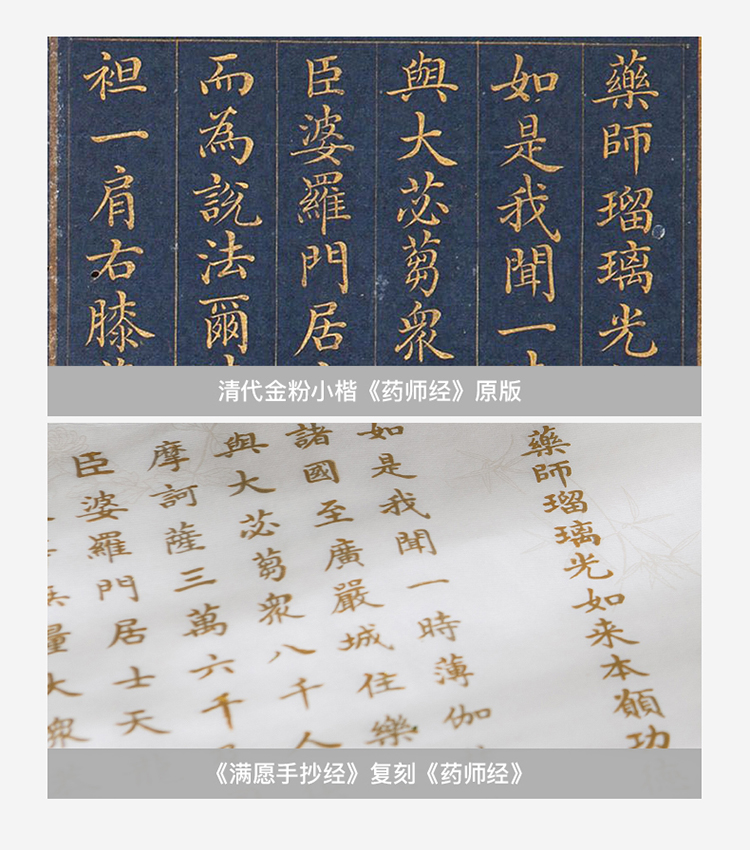 藥師瑠璃光
如是我聞一
與大苾蒭衆
臣婆羅門居
而為說法爾
袒一肩右膝
清代金粉小楷《药师经》原版
藥師瑠璃光如来本願功
如是我聞一時薄伽
諸國至廣嚴城住樂
與大苾蒭衆八千人
摩訶薩三萬六千
臣婆羅門居士天
量大衆
《满愿手抄经》复刻《药师经》